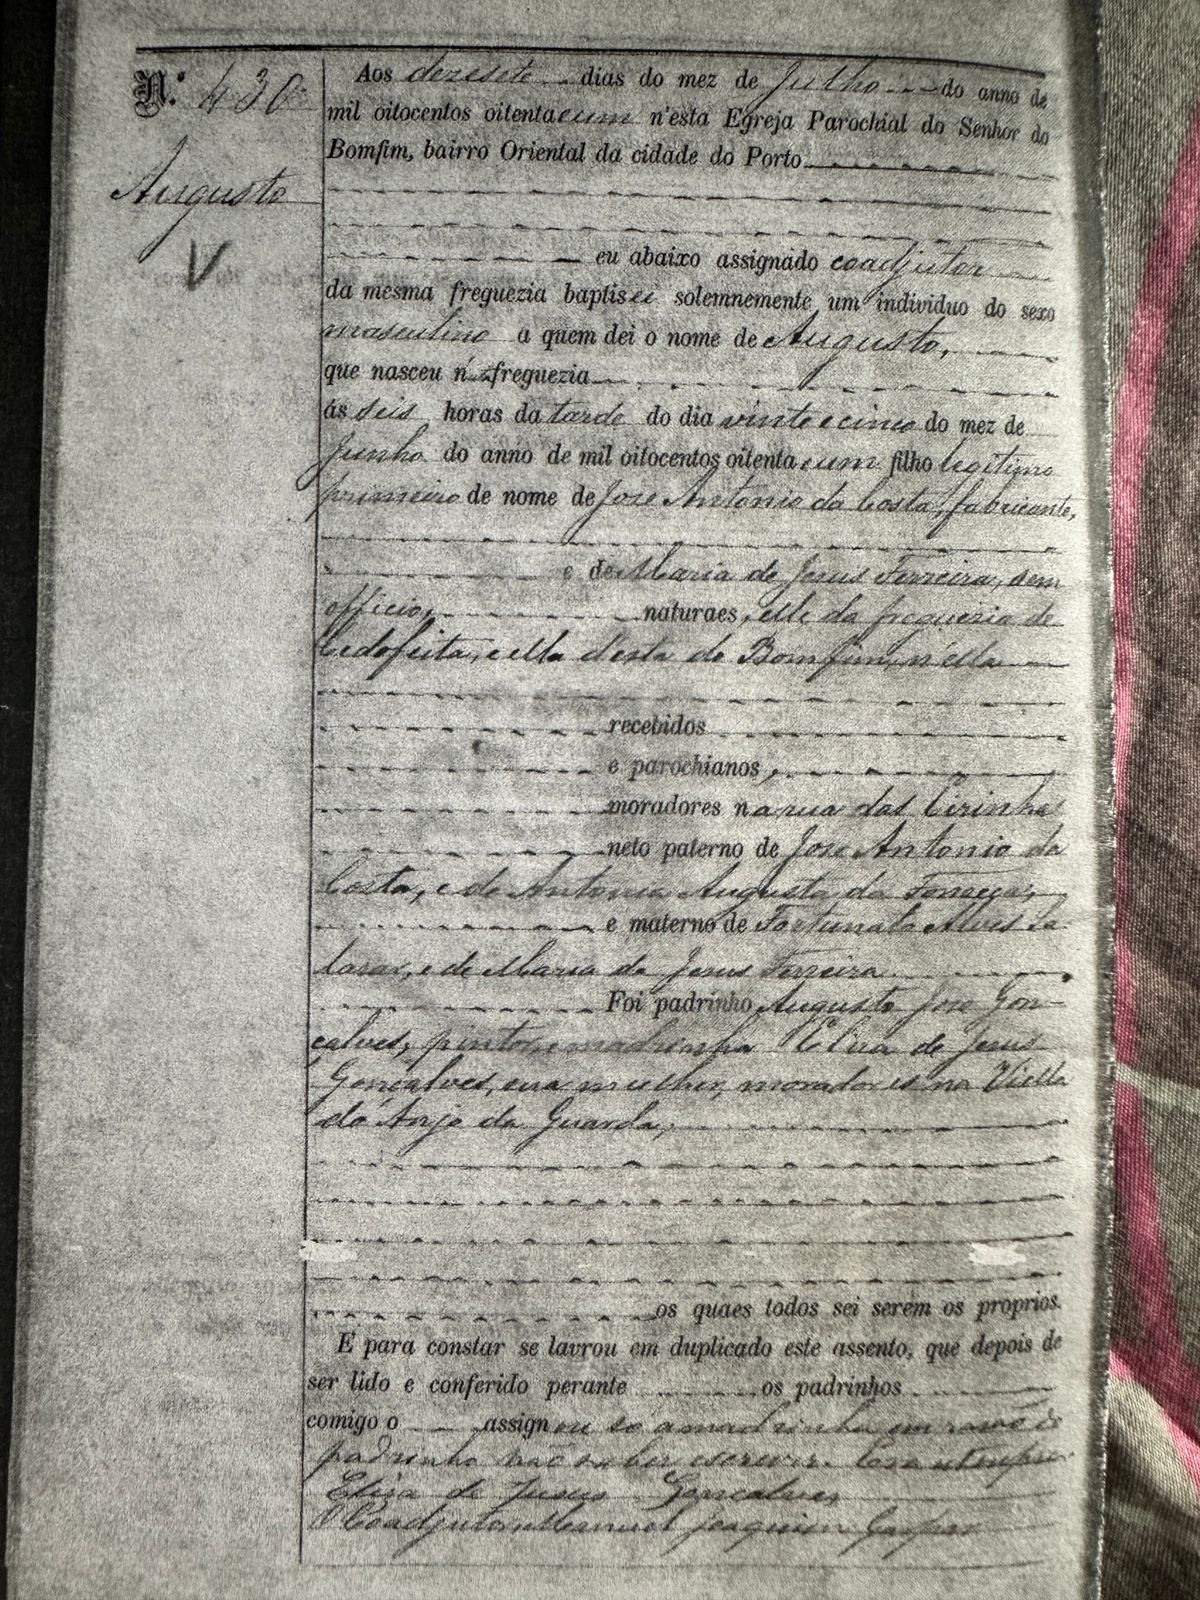 N.º 430
Augusto
V
Aos dezesete dias do mez de Julho do anno de
mil oitocentos oitenta e um n'esta Egreja Parochial do Senhor do
Bomfim, bairro Oriental da cidade do Porto
eu abaixo assignado coadjutor
da mesma freguezia baptisei solemnemente um individuo do sexo
masculino a quem dei o nome de Augusto,
que nasceu n' freguezia
ás seis horas da tarde do dia vinte e cinco do mez de
Junho do anno de mil oitocentos oitenta e um filho legitimo
primeiro de nome de Jose Antonio da Costa, fabricante,
e de Maria de Jesus Ferreira, sem
officio, naturaes, elle da freguezia de
Cedofeita, e ella d'esta de Bomfim, n'ella
recebidos
e parochianos,
moradores na rua das Cirinhas
neto paterno de Jose Antonio da
Costa, e de Antonia Augusta da Fonseca,
e materno de Fortunato Alves Sa
lasar, e de Maria de Jesus Ferreira.
Foi padrinho Augusto Jose Gon-
calves, pintor, e madrinha Elisa de Jesus
Gonçalves, sua mulher, moradores na Viella
do Anjo da Guarda,
os quaes todos sei serem os proprios.
E para constar se lavrou em duplicado este assento, que depois de
ser lido e conferido perante os padrinhos
comigo o assignou só a madrinha em razão do
padrinho não saber escrever. Era ut supra.
Elisa de Jesus Gonçalves
O Coadjutor, Manoel Joaquim